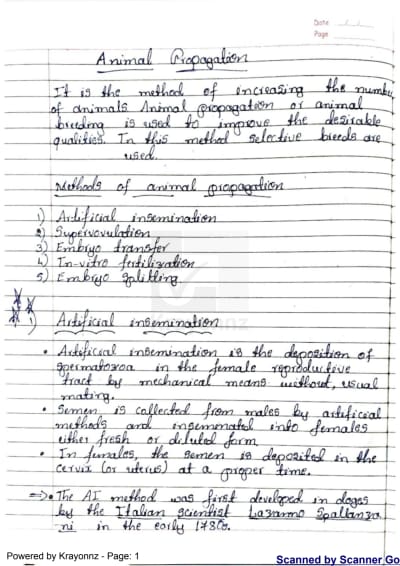 Date
Page
Animal Propagation
It is the method of increasing the number
of animals. Animal propagation or animal
breeding is used to improve the desirable
qualities. In this method selective breeds are
used.
Methods of animal propagation
1) Artificial insemination
2) Supervovulation
3) Embryo transfer
4) In-vitro fertilization
5) Embryo splitting
1) Artificial insemination
• Artificial insemination is the deposition of
spermatozoa in the female reproductive
tract by mechanical means without, usual
mating.
• Semen is collected from males by artificial
methods and inseminated into females
either fresh or diluted form
• In females, the semen is deposited in the
cervix (or uterus) at a proper time.
⇒• The AI method was first developed in dogs
by the Italian scientist Lazanno Spallanza
ni in the early 1780s.
Powered by Krayonnz - Page: 1
Scanned by Scanner Go